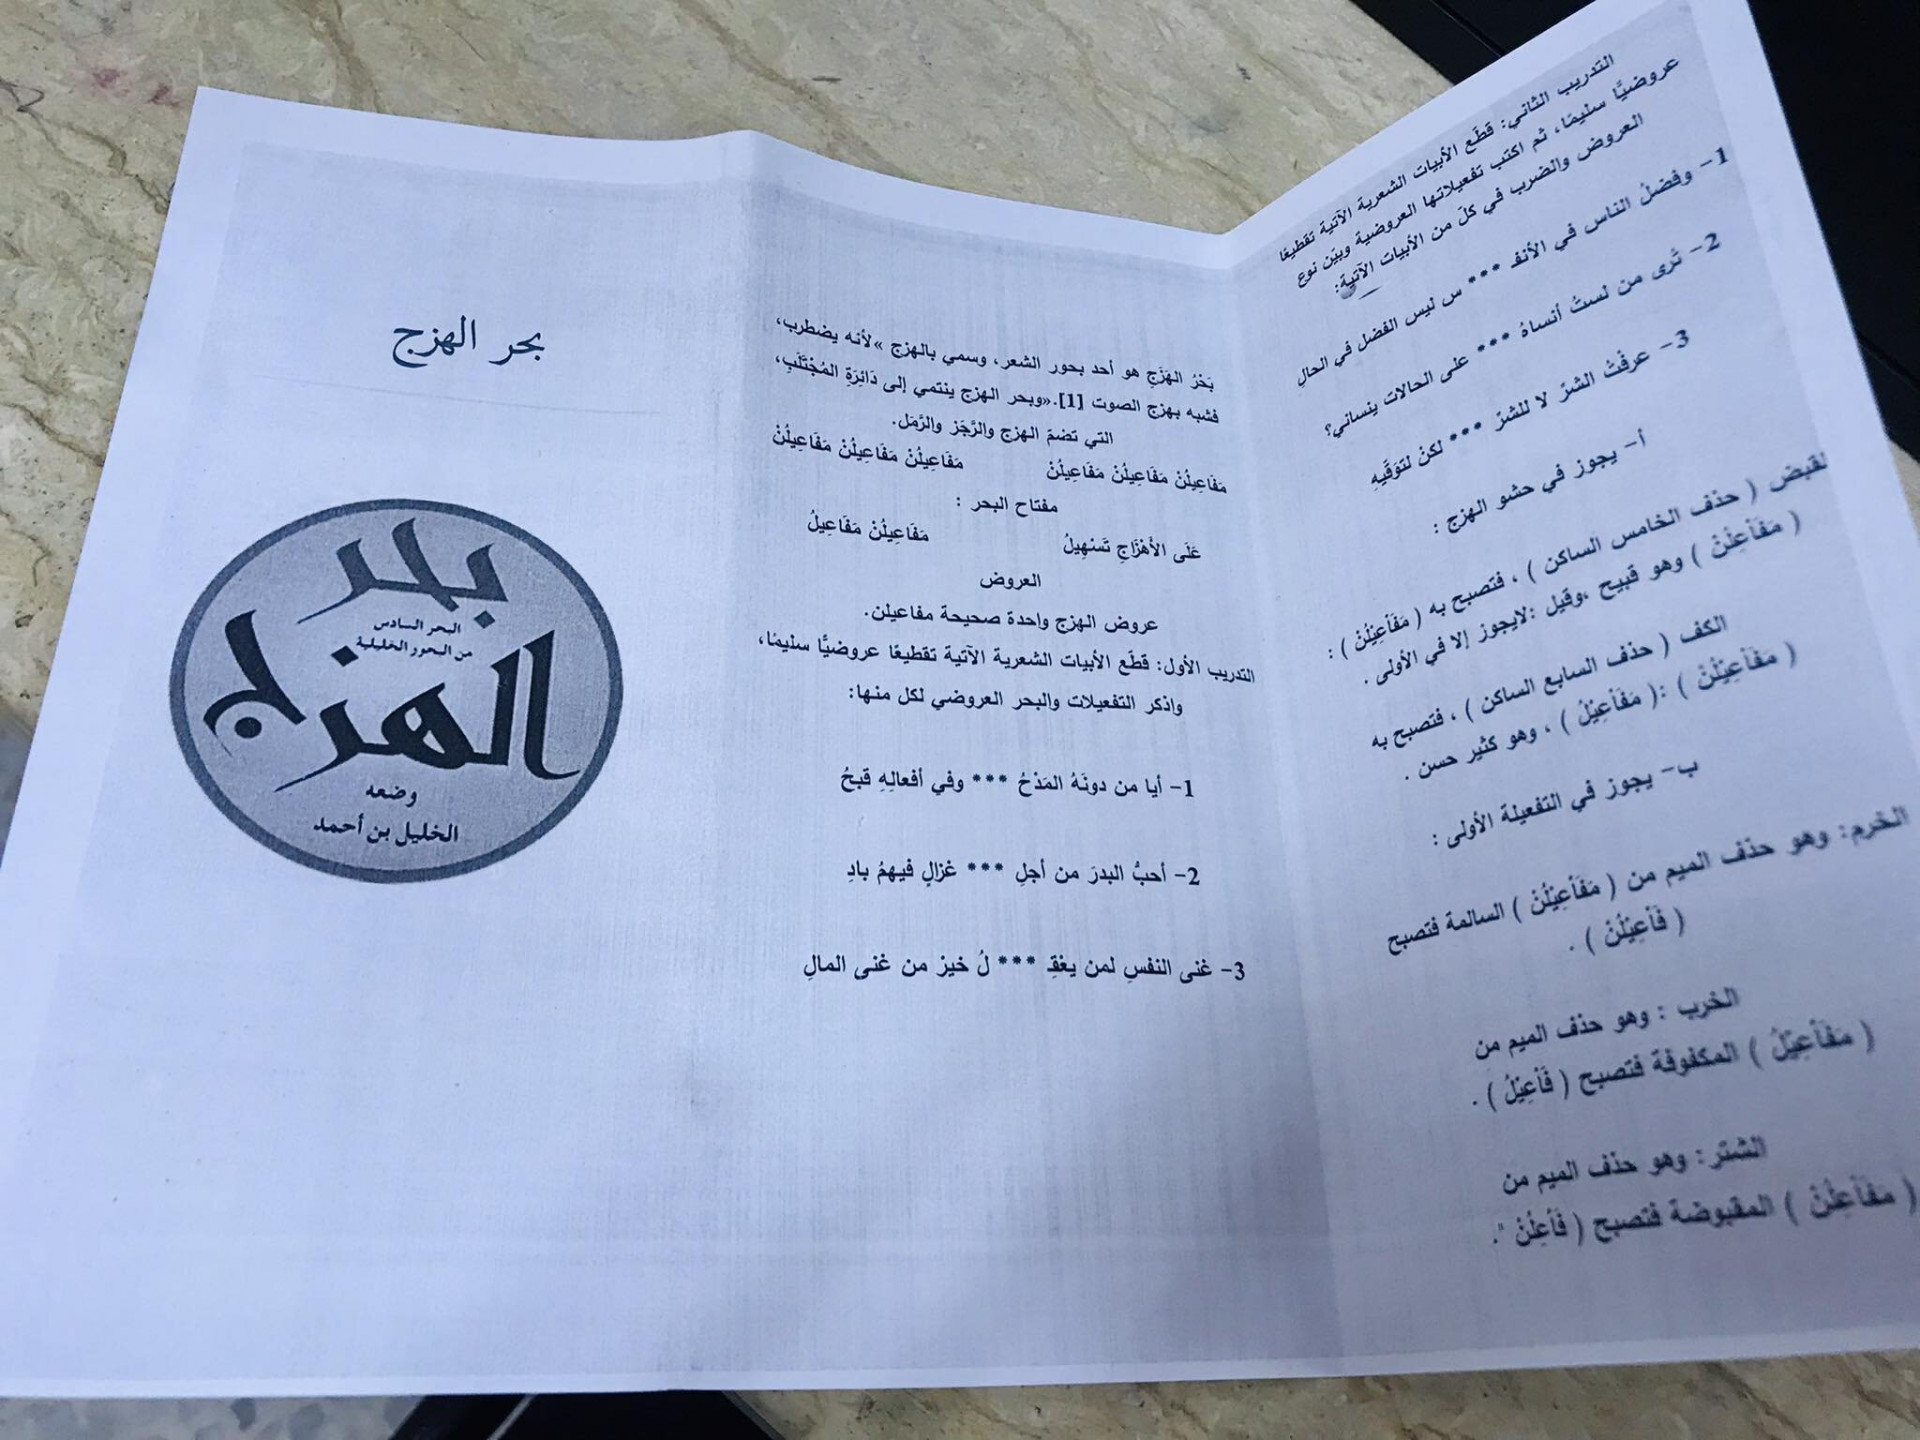 بحر الهزج
بحر
البحر السادس
من البحور الخليلية
الهزج
وضعه
الخليل بن أحمد
بَحْرُ الهَزَجِ هو أحد بحور الشعر، وسمي بالهزج »لأنه يضطرب،
فشبه بهزج الصوت [1].«وبحر الهزج ينتمي إلى دَائِرَةِ المُجْتَلَبِ،
التي تضمّ الهزج والرَّجَز والرَّمَل.
مَفَاعِيلُنْ مَفَاعِيلُنْ مَفَاعِيلُنْ مَفَاعِيلُنْ مَفَاعِيلُنْ مَفَاعِيلُنْ
مفتاح البحر :
عَلَى الأَهْزَاجِ تَسْهِيلُ مَفَاعِيلُنْ مَفَاعِيلُ
العروض
عروض الهزج واحدة صحيحة مفاعيلن.
التدريب الأول: قطّع الأبيات الشعرية الآتية تقطيعًا عروضيًّا سليمًا،
واذكر التفعيلات والبحر العروضي لكل منها:
1- أيا من دونَهُ المَدْحُ *** وفي أفعالِهِ قبحُ
2- أحبُّ البدرَ من أجلِ *** غزالٍ فيهمُ بادِ
3- غنى النفسِ لمن يعْقِـ *** لُ خيرٌ من غنى المالِ
التدريب الثاني: قطّع الأبيات الشعرية الآتية تقطيعًا
عروضيًّا سليمًا، ثم اكتب تفعيلاتها العروضية وبيّن نوع
العروض والضرب في كلّ من الأبيات الآتية:
1- وفضلُ الناس في الأنفـ *** س ليس الفضل في الحالِ
2- تُرى من لستُ أنساهُ *** على الحالات ينساني؟
3- عرفْتُ الشرّ لا للشرّ *** لكنْ لتوَقّيهِ
أ- يجوز في حشو الهزج :
لقبض ( حذف الخامس الساكن ) ، فتصبح به ( مَفَاْعِيْلُنْ ) :
( مَفَاْعِلُنْ ) وهو قبيح ،وقيل :لايجوز إلا في الأولى .
الكف ( حذف السابع الساكن ) ، فتصبح به
( مَفَاْعِيْلُنْ ) :( مَفَاْعِيْلُ ) ، وهو كثير حسن .
ب- يجوز في التفعيلة الأولى :
الخرم: وهو حذف الميم من ( مَفَاْعِيْلُنْ ) السالمة فتصبح
( فَاْعِيْلُنْ ) .
الخرب : وهو حذف الميم من
( مَفَاْعِيْلُ ) المكفوفة فتصبح ( فَاْعِيْلُ ) .
الشتر: وهو حذف الميم من
( مَفَاْعِلُنْ ) المقبوضة فتصبح ( فَاْعِلُنْ ".